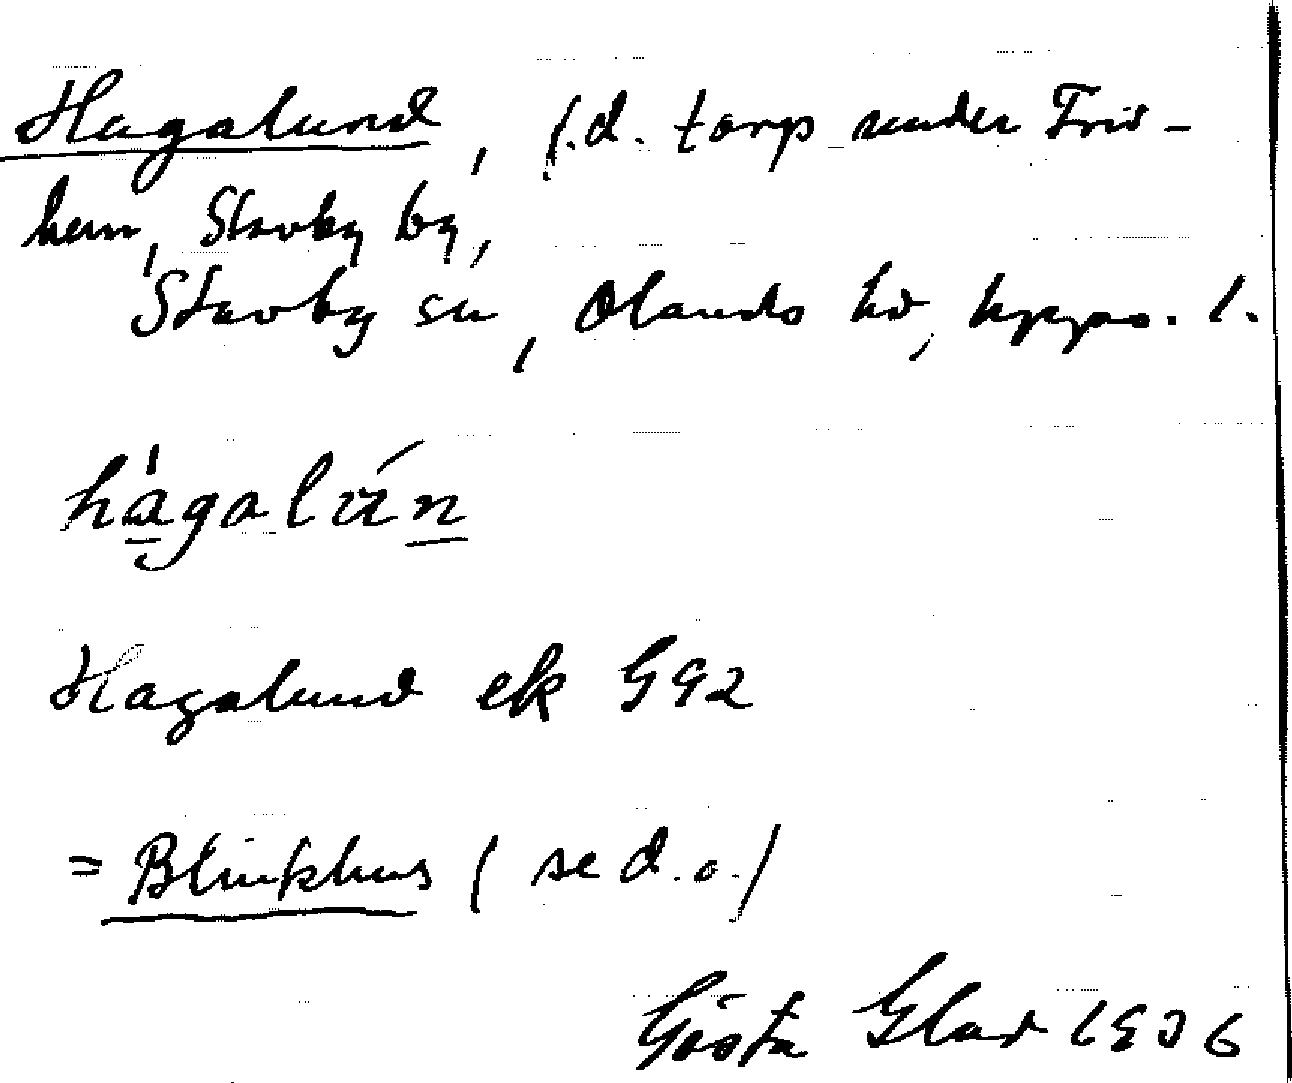 Hagalund, f.d. torp under Frid-
hem, Stavby by,
Stavby sn, Olands hd, Upps. l.
hágalún
Hagalund ek G92
= Blinkhus (se d.o.)
Gösta Glad 1936